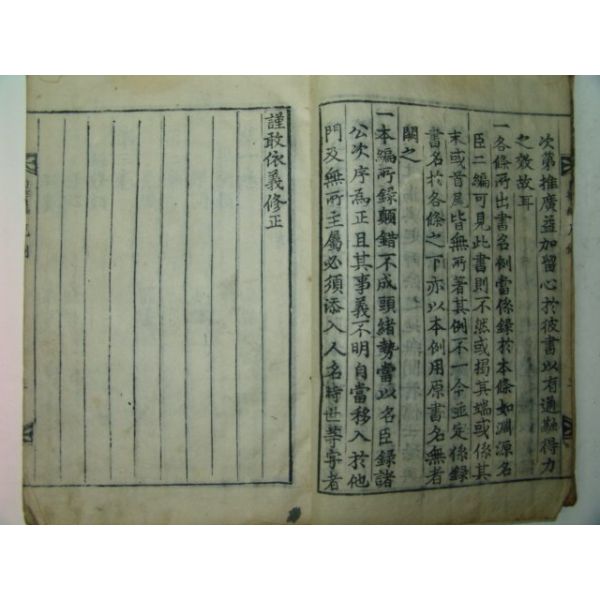 次第推廣益加留心於彼書以有通融得力
之效故耳
一各條所出書名例當係錄於本條如淵源名
臣二編可見此書則不然或揭其端或係其
末或首尾皆無所著其例不一今並定係錄
書名於各條之下亦以本例用原書名無者
闕之
一本編所錄顛錯不成頭緒勢當以名臣錄諸
公次序為正且其事義不明自當移入於他
門及無所主屬必須添入人名時世等字者
謹敢依義修正